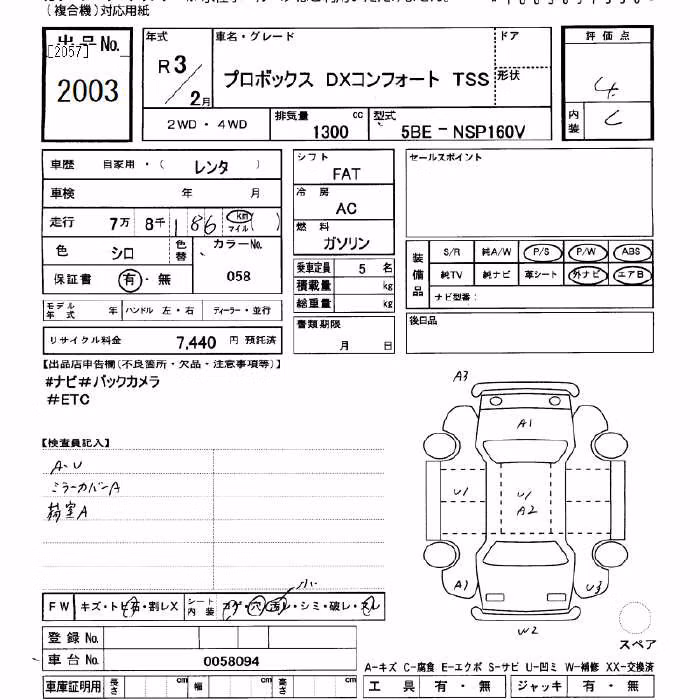 (複合機)対応用紙
出品No.
[2057]
2003
年式
R3/2月
車名・グレード
プロボックス DXコンフォート TSS
ドア
形状
評価点
4
内装
C
2WD・4WD
排気量
1300 cc
型式
5BE-NSP160V
車歴 自家用・( レンタ )
車検 年 月
走行 7万 8千 186 km マイル ( )
色 シロ
色替
カラーNo.
058
保証書 有・無
シフト
FAT
冷房
AC
燃料
ガソリン
乗車定員 5 名
積載量 kg
総重量 kg
書類期限
月 日
セールスポイント
装備品
S/R 純A/W P/S P/W ABS
純TV 純ナビ 革シート 外ナビ エアB
ナビ型番:
後日品
モデル年式 年 ハンドル 左・右 ディーラー・並行
リサイクル料金 7,440 円 預託済
【出品店申告欄(不良箇所・欠品・注意事項等)】
#ナビ#バックカメラ
#ETC
【検査員記入】
A・U
ミラーカバーA
荷室A
A3
A1
U1
U1
A2
A1
U3
W2
スペア
FW キズ・トビ石・割レX
シート内装 コゲ・穴・汚レ・シミ・破レ・スレ
小
登録No.
車台No. 0058094
車庫証明用 長さ cm 幅 cm 高さ cm
A-キズ C-腐食 E-エクボ S-サビ U-凹ミ W-補修 XX-交換済
工具 有・無 ジャッキ 有・無